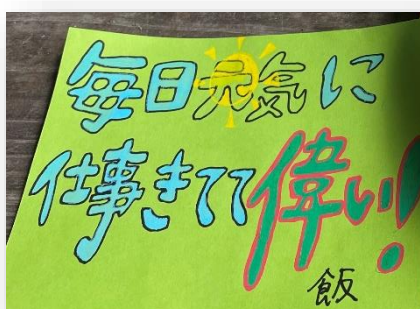 毎日元気に
仕事きてて偉い!
飯